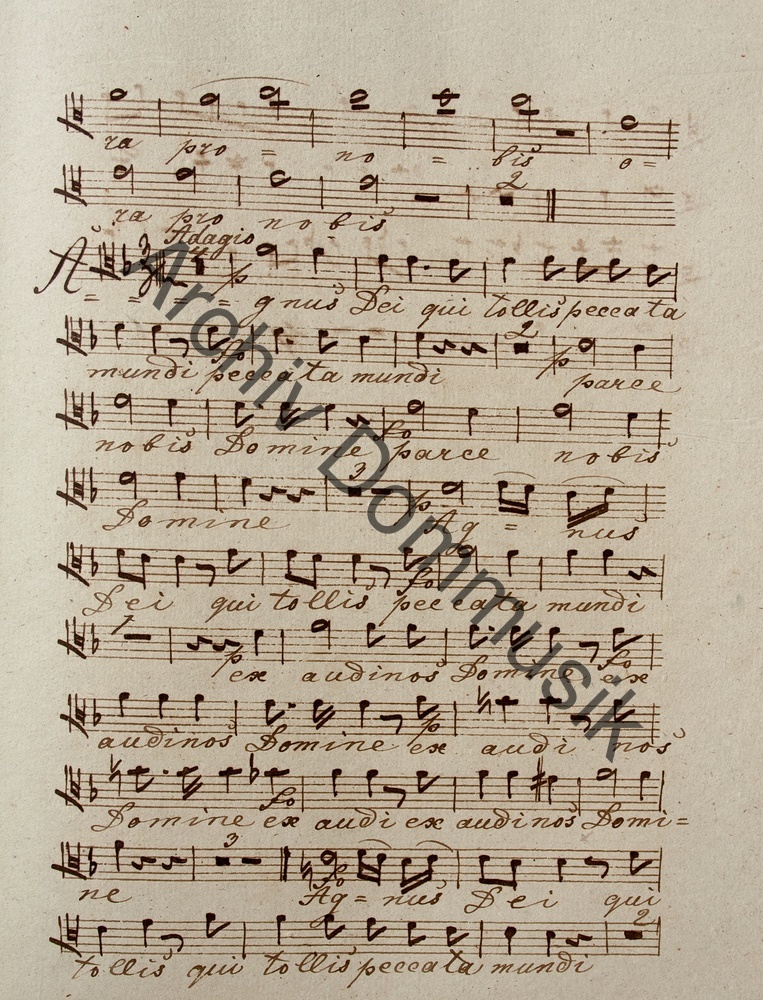 ra pro = no = bis o =
2
ra pro nobis
Adagio
A = = = = gnus Dei qui tollis peccata
2
mundi peccata mundi parce
nobis Domine parce nobis
3
Domine Ag = nus
Dei qui tollis peccata mundi
1
ex audi nos Domine ex
audi nos Domine ex audi nos
Domine ex audi ex audi nos Domi =
3
ne Ag = nus Dei qui
2
tollis qui tollis peccata mundi
Archiv Dommusik